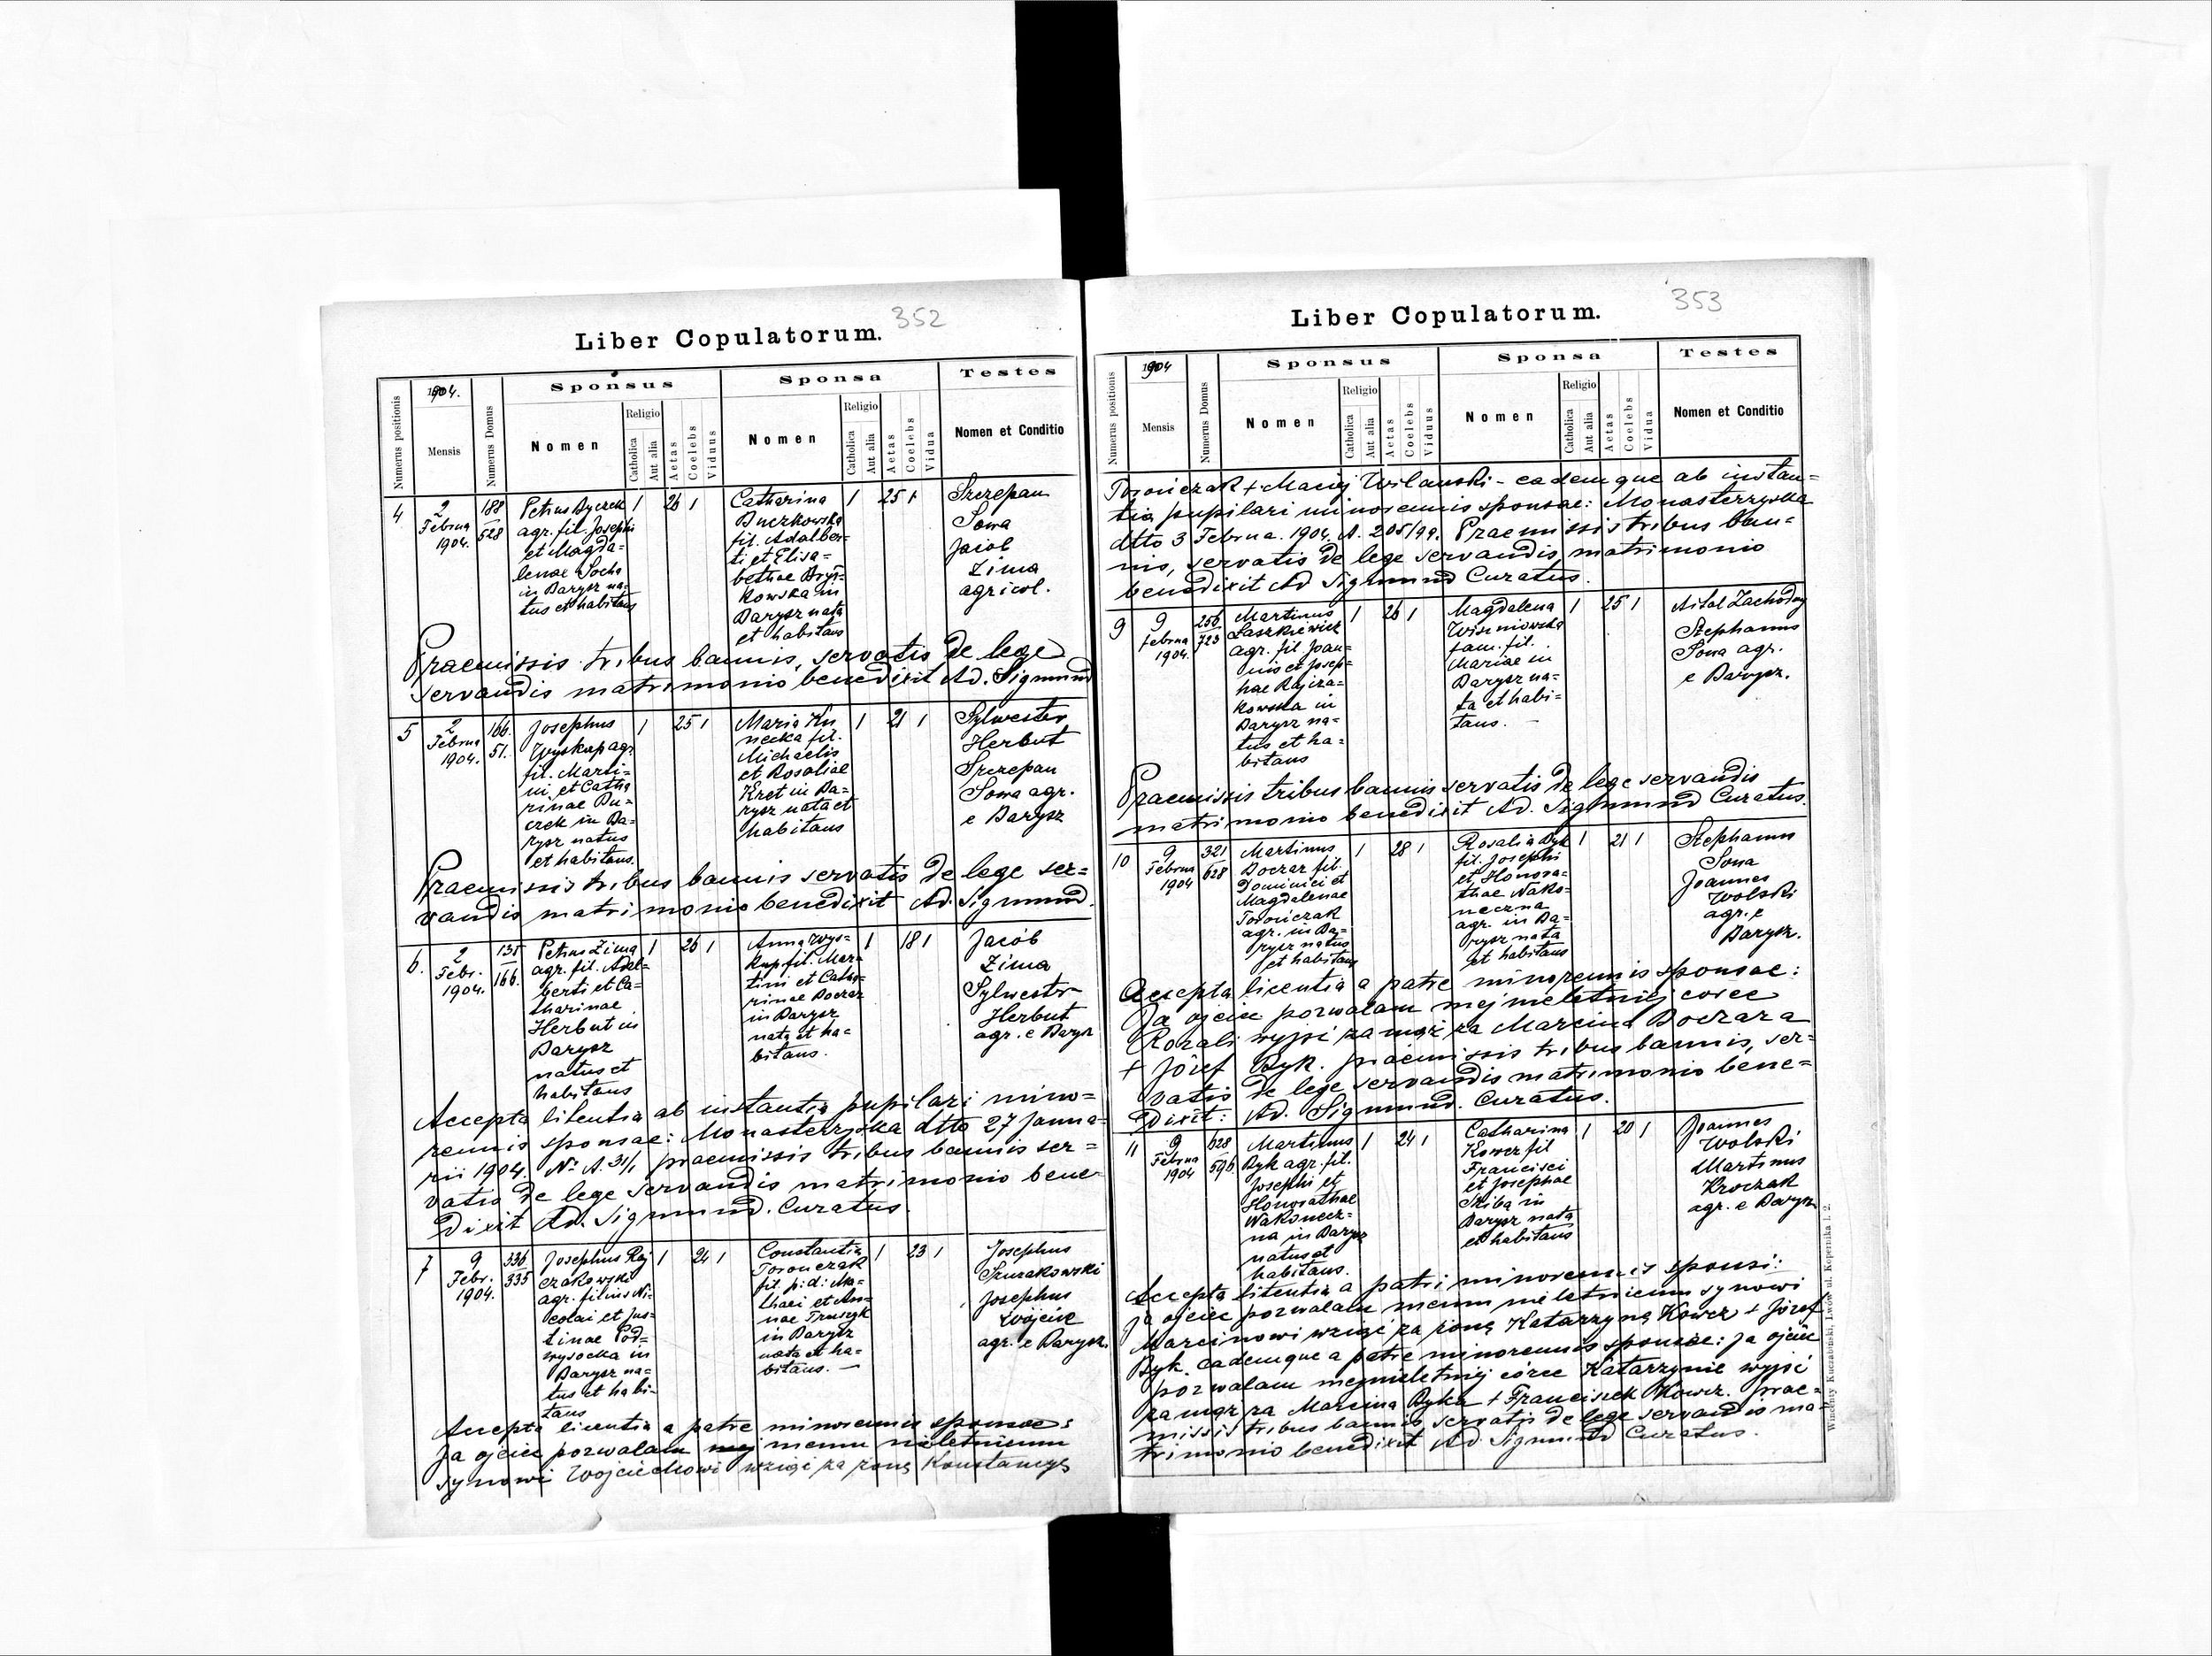 352
Liber Copulatorum.
Numerus positionis
1904.
Mensis
Numerus Domus
Sponsus
Nomen
Religio
Catholica
Aut alia
Aetas
Coelebs
Viduus
Sponsa
Nomen
Religio
Catholica
Aut alia
Aetas
Coelebs
Vidua
Testes
Nomen et Conditio
4
2
Februa
1904.
188
528
Petrus Byczek
agr. fil. Josephi
et Magda=
lenae Socha
in Barysz na=
tus et habitans
1
26 1
Catharina
Buczkowska
fil. Adalber=
ti et Elisa=
bethae Bryś=
kowska in
Barysz nata
et habitans
1
25 1
Szczepan
Sowa
Jacob
Zima
agricol.
Praemissis tribus bannis, servatis de lege
servandis matrimonio benedixit Ad. Sigmund
5
2
Februa
1904.
166.
51.
Josephus
Wyskup agr.
fil. Marti=
ni et Catha
rinae Du=
czek in Ba=
rysz natus
et habitans.
1
25 1
Maria Ku
necka fil.
Michaelis
et Rosaliae
Kret in Ba=
rysz nata et
habitans
1
21 1
Sylwester
Herbut
Szczepan
Sowa agr.
e Barysz
Praemissis tribus bannis servatis de lege ser=
vandis matrimonio benedixit Ad. Sigmund.
6.
2
Febr.
1904.
135
166.
Petrus Zima
agr. fil. Adal=
berti et Ca=
tharinae
Herbut in
Barysz
natus et
habitans
1
26 1
Anna Wys=
kup fil. Mar=
tini et Catha=
rinae Doczar
in Barysz
nata et ha=
bitans.
1
18 1
Jacób
Zima
Sylwestr
Herbut
agr. e Barysz
Accepta licentia ab instantia pupilari mino=
rennis sponsae: Monasterzyska dtto 27 Janua=
rii 1904. No A. 31/1 praemissis tribus bannis ser=
vatis de lege servandis matrimonio bene=
dixit Ad. Sigmund. Curatus.
7
9
Febr.
1904.
336
335
Josephus Raj
czakowski
agr. filius Ni=
colai et Jus=
tinae Pod=
wysocka in
Barysz na=
tus et habi=
tans
1
24 1
Constantia
Torończak
fil. p: d: Ma=
thaei et An=
nae Truszyk
in Barysz
nata et ha=
bitans. —
1
23 1
Josephus
Szurakowski
Josephus
Wójcik
agr. e Barysz.
Accepta licentia a patre minorennis sponsae:
Ja ojciec pozwalam mej memu nieletniemu
synowi Wojciechowi wziąć za żonę Konstancyę
353
Liber Copulatorum.
Numerus positionis
1904
Mensis
Numerus Domus
Sponsus
Nomen
Religio
Catholica
Aut alia
Aetas
Coelebs
Viduus
Sponsa
Nomen
Religio
Catholica
Aut alia
Aetas
Coelebs
Vidua
Testes
Nomen et Conditio
Torończak + Maciej Wilanski - eademque ab instan=
tia pupilari minorennis sponsae: Monasterzyska
dtto 3 Februa. 1904. A. 205/99. Praemissis tribus ban=
nis, servatis de lege servandis matrimonio
benedixit Ad Sigmund Curatus.
9
9
Februa
1904.
256
723
Martinus
Laszkiewicz
agr. fil. Joan=
nis et Josep=
hae Rajcza=
kowska in
Barysz na=
tus et ha=
bitans
1
26 1
Magdalena
Wiśniowska
fam. fil.
Mariae in
Barysz na=
ta et habi=
tans. —
1
25 1
Zachodny
Stephanus
Sowa agr.
e Barysz.
Praemissis tribus bannis servatis de lege servandis
matrimonio benedixit Ad. Sigmund Curatus.
10
9
Februa
1904
321
628
Martinus
Doczar fil.
Dominici et
Magdalenae
Torończak
agr. in Ba=
rysz natus
et habitans
1
28 1
Rosalia Byk
fil. Josephi
et Honora=
thae Nako=
neczna
agr. in Ba=
rysz nata
et habitans
1
21 1
Stephanus
Sowa
Joannes
Wolski
agr. e
Barysz.
Accepta licentia a patre minorennis sponsae:
Ja ojciec pozwalam mej nieletniej córce
Rozali wyjść za mąż za Marcina Doczara
+ Józef Byk. praemissis tribus bannis, ser=
vatis de lege servandis matrimonio bene=
dixit: Ad. Sigmund. Curatus.
11
9
Februa
1904
628
596
Martinus
Byk agr. fil.
Josephi et
Honorathae
Nakonecz=
na in Barysz
natus et
habitans.
1
24 1
Catharina
Kowcz fil
Francisci
et Josephae
Skiba in
Barysz nata
et habitans
1
20 1
Joannes
Wolski
Martinus
Kroczak
agr. e Barysz
Accepta licentia a patri minorennis sponsi:
ja ojciec pozwalam memu nieletniemu synowi
Marcinowi wziąć za żonę Katarzynę Kowcz + Józef
Byk. eademque a patre minorennis sponsae: ja ojciec
pozwalam mej nieletniej córce Katarzynie wyjść
za mąż za Marcina Byka + Franciszek Kowcz. prae=
missis tribus bannis servatis de lege servandis ma=
trimonio benedixit Ad. Sigmund Curatus.
Lwów ul. Kopernika l. 2.